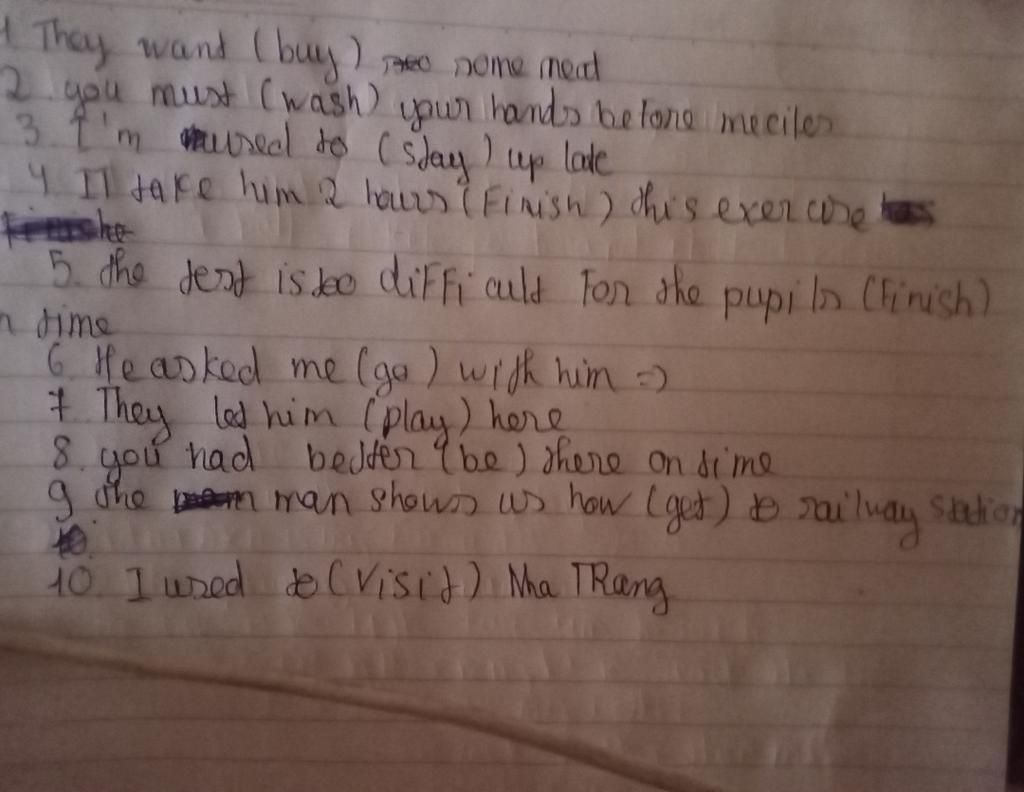 1 They want (buy) some meat
2 you must (wash) your hands before meciles
3 I'm used to (stay) up late
4 IT take him 2 hours (Finish) this exercise
5. the test is too difficult For the pupils (Finish)
n time
6 He asked me (go) with him =>
7 They let him (play) here
8 you had better (be) there on time
9 the man shows us how (get) to railway station
10. I used to (visit) Nha TRang